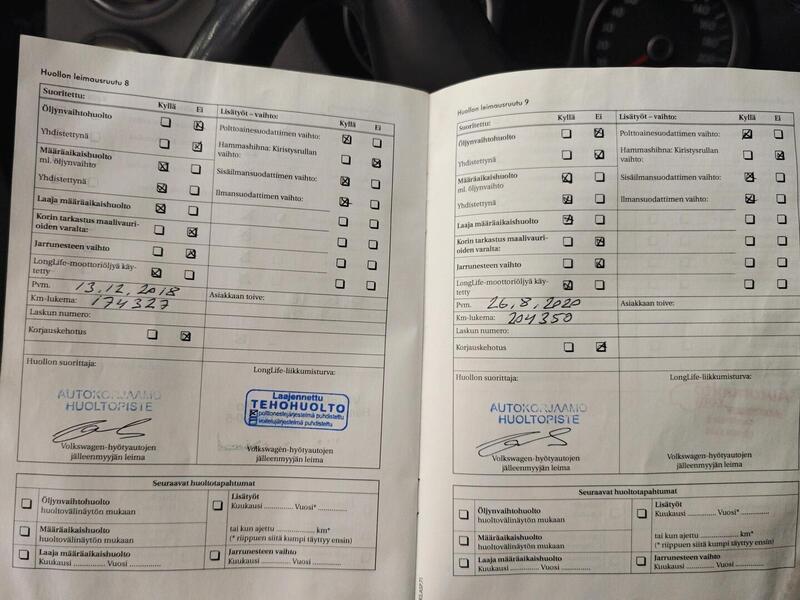 Huollon leimausruutu 8
Suoritettu: Kyllä Ei Lisätyöt – vaihto: Kyllä Ei
Öljynvaihtohuolto
Polttoainesuodattimen vaihto:
Yhdistettynä
Hammashihna: Kiristysrullan
vaihto:
Määräaikaishuolto
ml. öljynvaihto
Sisäilmansuodattimen vaihto:
Yhdistettynä
Ilmansuodattimen vaihto:
Laaja määräaikaishuolto
Korin tarkastus maalivauri-
oiden varalta:
Jarrunesteen vaihto
LongLife-moottoriöljyä käy-
tetty
Pvm. 13.12.2018
Asiakkaan toive:
Km-lukema: 174327
Laskun numero:
Korjauskehotus
Huollon suorittaja:
LongLife-liikkumisturva:
AUTOKORJAAMO
HUOLTOPISTE
Laajennettu
TEHOHUOLTO
polttonestejärjestelmä puhdistettu
voitelujärjestelmä puhdistettu
Volkswagen-hyötyautojen
jälleenmyyjän leima
Volkswagen-hyötyautojen
jälleenmyyjän leima
Seuraavat huoltotapahtumat
Öljynvaihtohuolto
huoltovälinäytön mukaan
Lisätyöt
Kuukausi ............ Vuosi* ............
Määräaikaishuolto
huoltovälinäytön mukaan
tai kun ajettu ............ km*
(* riippuen siitä kumpi täyttyy ensin)
Laaja määräaikaishuolto
Kuukausi ............ Vuosi ............
Jarrunesteen vaihto
Kuukausi ............ Vuosi ............
Huollon leimausruutu 9
Suoritettu: Kyllä Ei Lisätyöt – vaihto: Kyllä Ei
Öljynvaihtohuolto
Polttoainesuodattimen vaihto:
Yhdistettynä
Hammashihna: Kiristysrullan
vaihto:
Määräaikaishuolto
ml. öljynvaihto
Sisäilmansuodattimen vaihto:
Yhdistettynä
Ilmansuodattimen vaihto:
Laaja määräaikaishuolto
Korin tarkastus maalivauri-
oiden varalta:
Jarrunesteen vaihto
LongLife-moottoriöljyä käy-
tetty
Pvm. 26,8,2020
Asiakkaan toive:
Km-lukema: 204350
Laskun numero:
Korjauskehotus
Huollon suorittaja:
LongLife-liikkumisturva:
AUTOKORJAAMO
HUOLTOPISTE
Volkswagen-hyötyautojen
jälleenmyyjän leima
Volkswagen-hyötyautojen
jälleenmyyjän leima
Seuraavat huoltotapahtumat
Öljynvaihtohuolto
huoltovälinäytön mukaan
Lisätyöt
Kuukausi ............ Vuosi* ............
Määräaikaishuolto
huoltovälinäytön mukaan
tai kun ajettu ............ km*
(* riippuen siitä kumpi täyttyy ensin)
Laaja määräaikaishuolto
Kuukausi ............ Vuosi ............
Jarrunesteen vaihto
Kuukausi ............ Vuosi ............